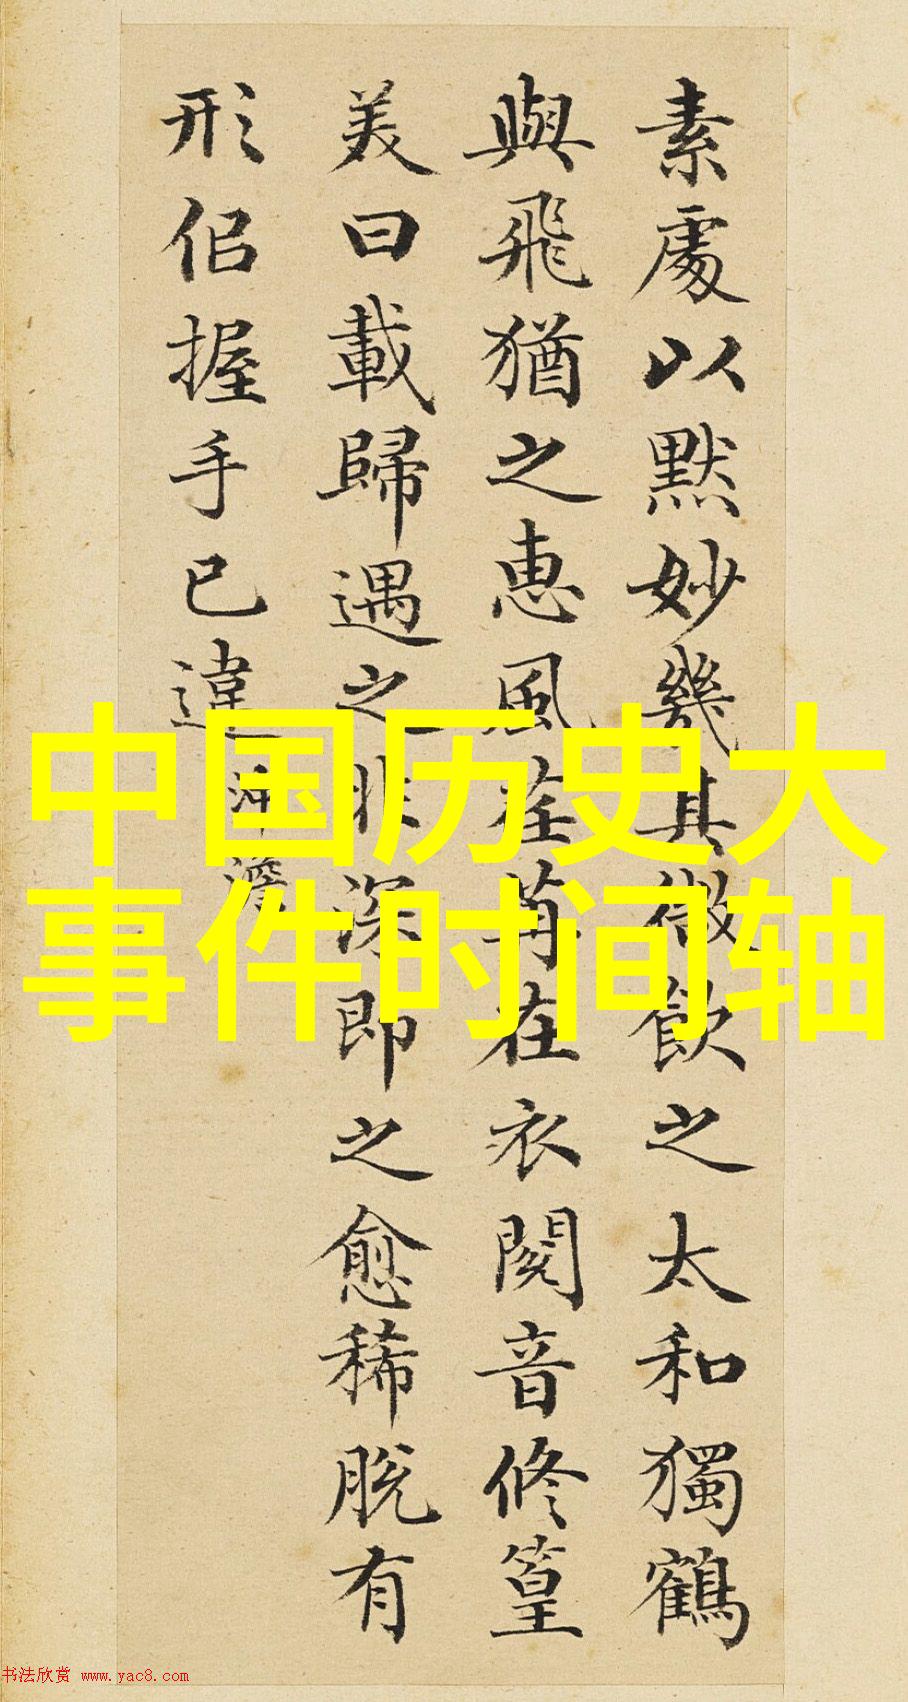 素處以默妙幾其微飲之太和獨鶴
與飛猶之惠風荏苒在衣閱音修篁
美曰載歸遇之非深即之愈稀脫有
形佀握手已違
沖澹
中国历史大
事件时间轴
书法欣赏 www.yac8.com